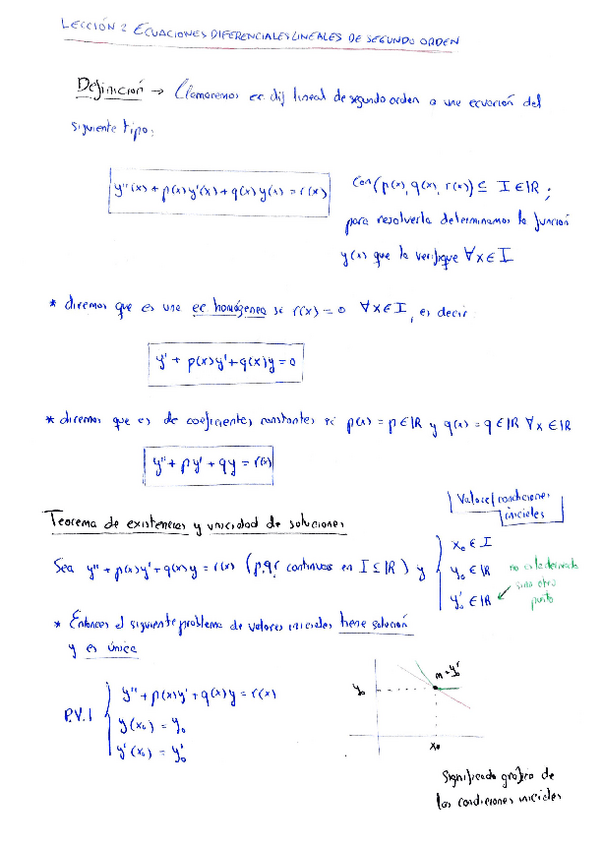 LECCIÓN 2 ECUACIONES DIFERENCIALES LINEALES DE SEGUNDO ORDEN
Definición → Llamaremos ec. dif lineal de segundo orden a una ecuación del
siguiente tipo:
y''(x) + p(x)y'(x) + q(x)y(x) = r(x)
Con (p(x), q(x), r(x)) ⊆ I ∈ IR ;
para resolverla determinamos la función
y(x) que la verifique ∀x ∈ I
* diremos que es una ec homógenea si r(x) = 0 ∀x ∈ I, es decir:
y' + p(x)y' + q(x)y = 0
* diremos que es de coeficientes constantes si p(x) = p ∈ IR y q(x) = q ∈ IR ∀x ∈ IR
y'' + py' + qy = r(x)
Valores/condiciones
iniciales
Teorema de existencia y unicidad de soluciones
Sea y'' + p(x)y' + q(x)y = r(x) (p,q,r continuas en I ⊆ IR) y
x₀ ∈ I
y₀ ∈ IR
y'₀ ∈ IR
no es la derivada
sino otro
punto
* Entonces el siguiente problema de valores iniciales tiene solución
y es única
P.V.I
y'' + p(x)y' + q(x)y = r(x)
y(x₀) = y₀
y'(x₀) = y'₀
y₀
m = y'₀
x₀
Significado grafico de
las condiciones iniciales